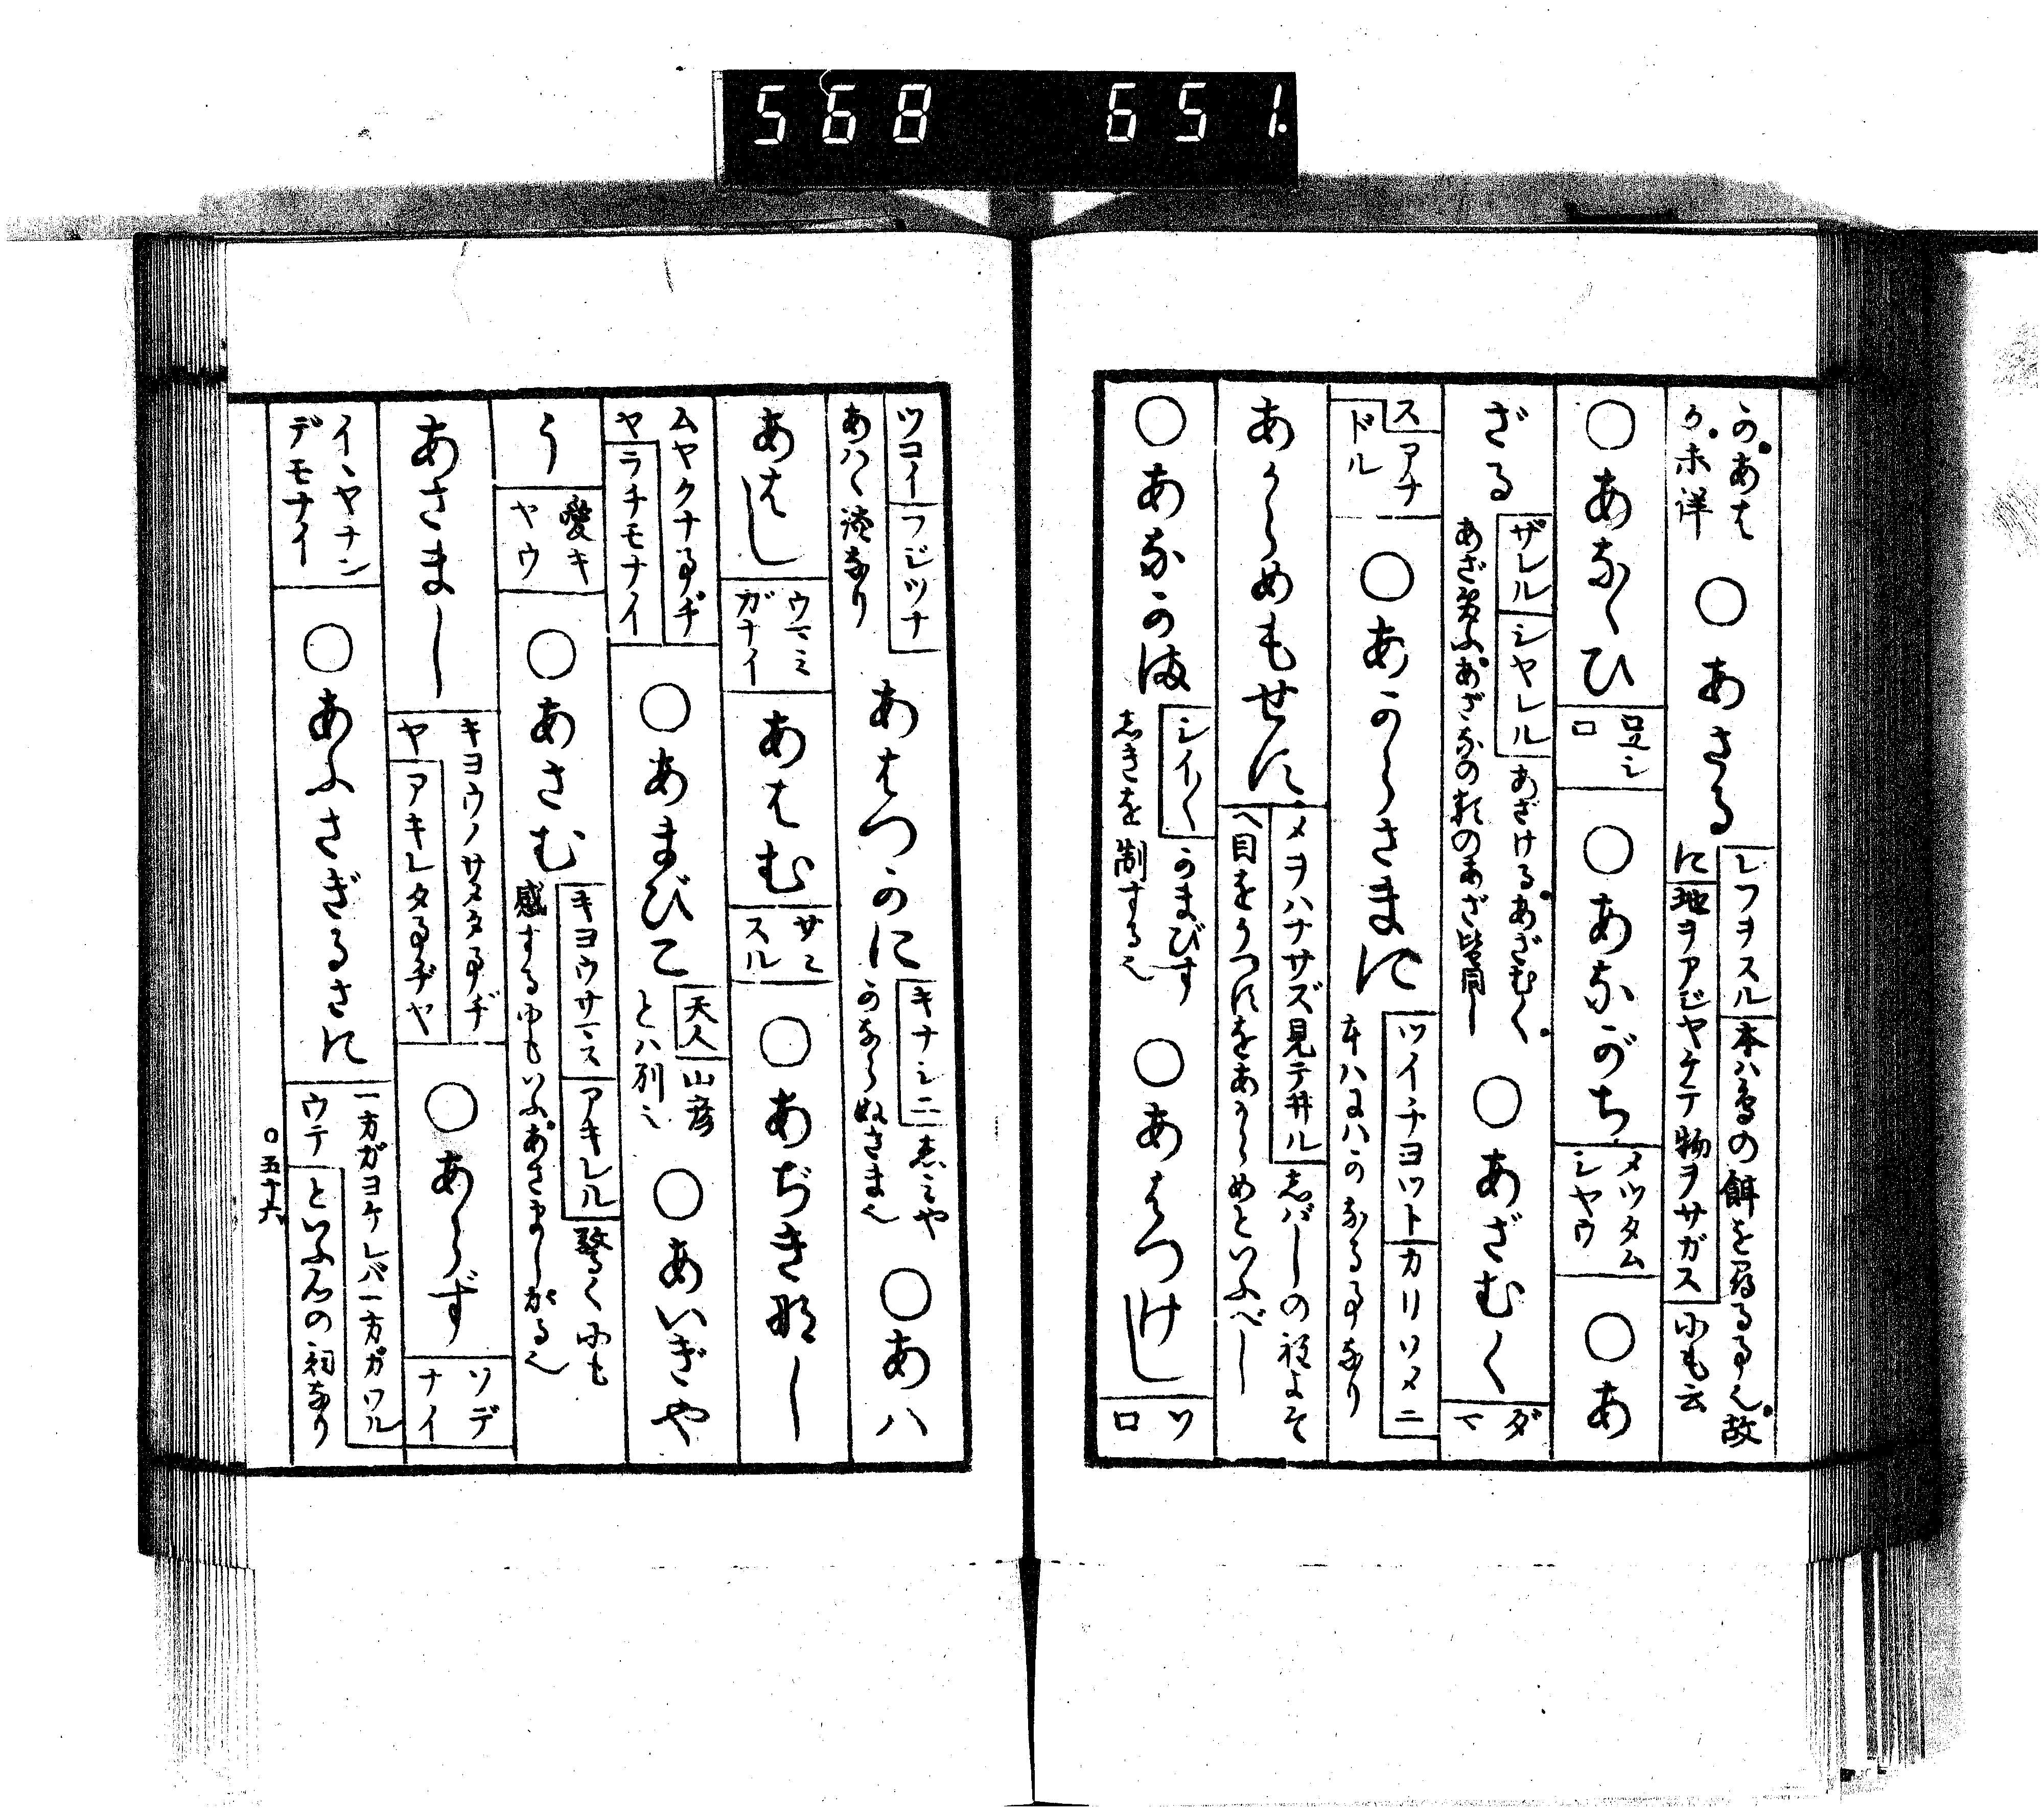 568 651
かあは
か未詳
○あさる
レフヲスル 本ハ鳥の餌を尋るる事也故
に 地ヲアヂヤチテ物ヲサガス にも云
○あなくひ
足シ
ロ
○あながち
メツタム
シヤウ
○あ
ざる
ザレル シヤレル あざける。あざむく。
あざ笑ふ。あざなの類のあざ皆同し
○あざむく
ダ
マ
ス アナ
ドル
○あからさまに
ツイチヨツト カリソメニ
本ハ又ハかなる事なり
あからめもせに
メヲハナサズ見テ井ル しバしの程よそ
へ目をうつにをあからめといふべし
○あなかま
シイ〳〵 かまびす
しきを制する也
○あはつけし
ツ
ロ
ツヨイ フジツナ
あハく淡なり
あはつかに
キナシニ 志ミや
かならぬさま也
○あハ
あはし
ウマミ
ガナイ
あはむ
サミ
スル
○あぢき那し
ムヤクナ事ヂ
ヤ ラチモナイ
○あまびこ
天人 山彦
とハ別ミ
○あいぎや
う
愛キ
ヤウ
○あさむ
キヨウサマス アキレル 驚くにも
感するにもいふ。あさましがる也
あさまし
キヨウノサメタ事ヂ
ヤ アキレタ事ヂヤ
○あらず
ソデ
ナイ
イヽヤナン
デモナイ
○あふさぎるさに
一方ガヨケレバ一方ガワル
ウテ といふ心の詞なり
○五十六